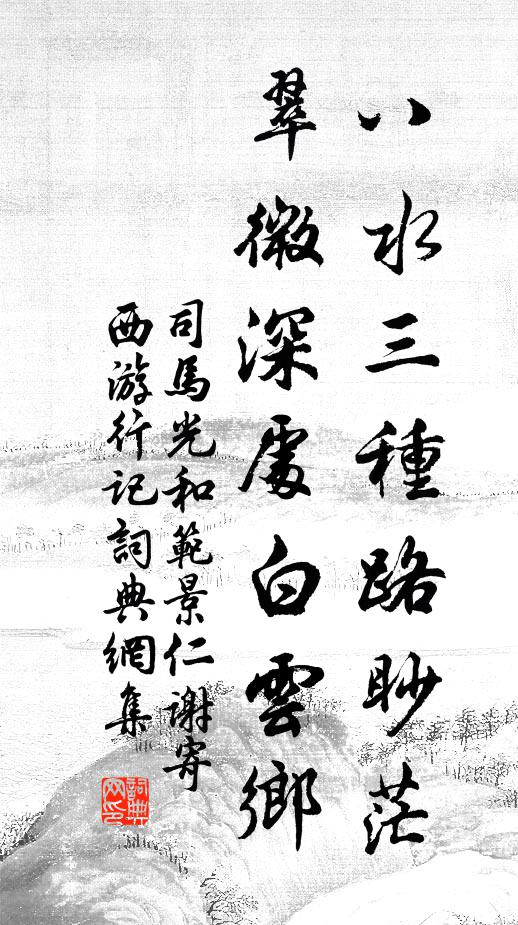 八水三種路眇茫
翠微深處白雲鄉
司馬光和範景仁謝寄
西游行記詞典網集
詞典網印